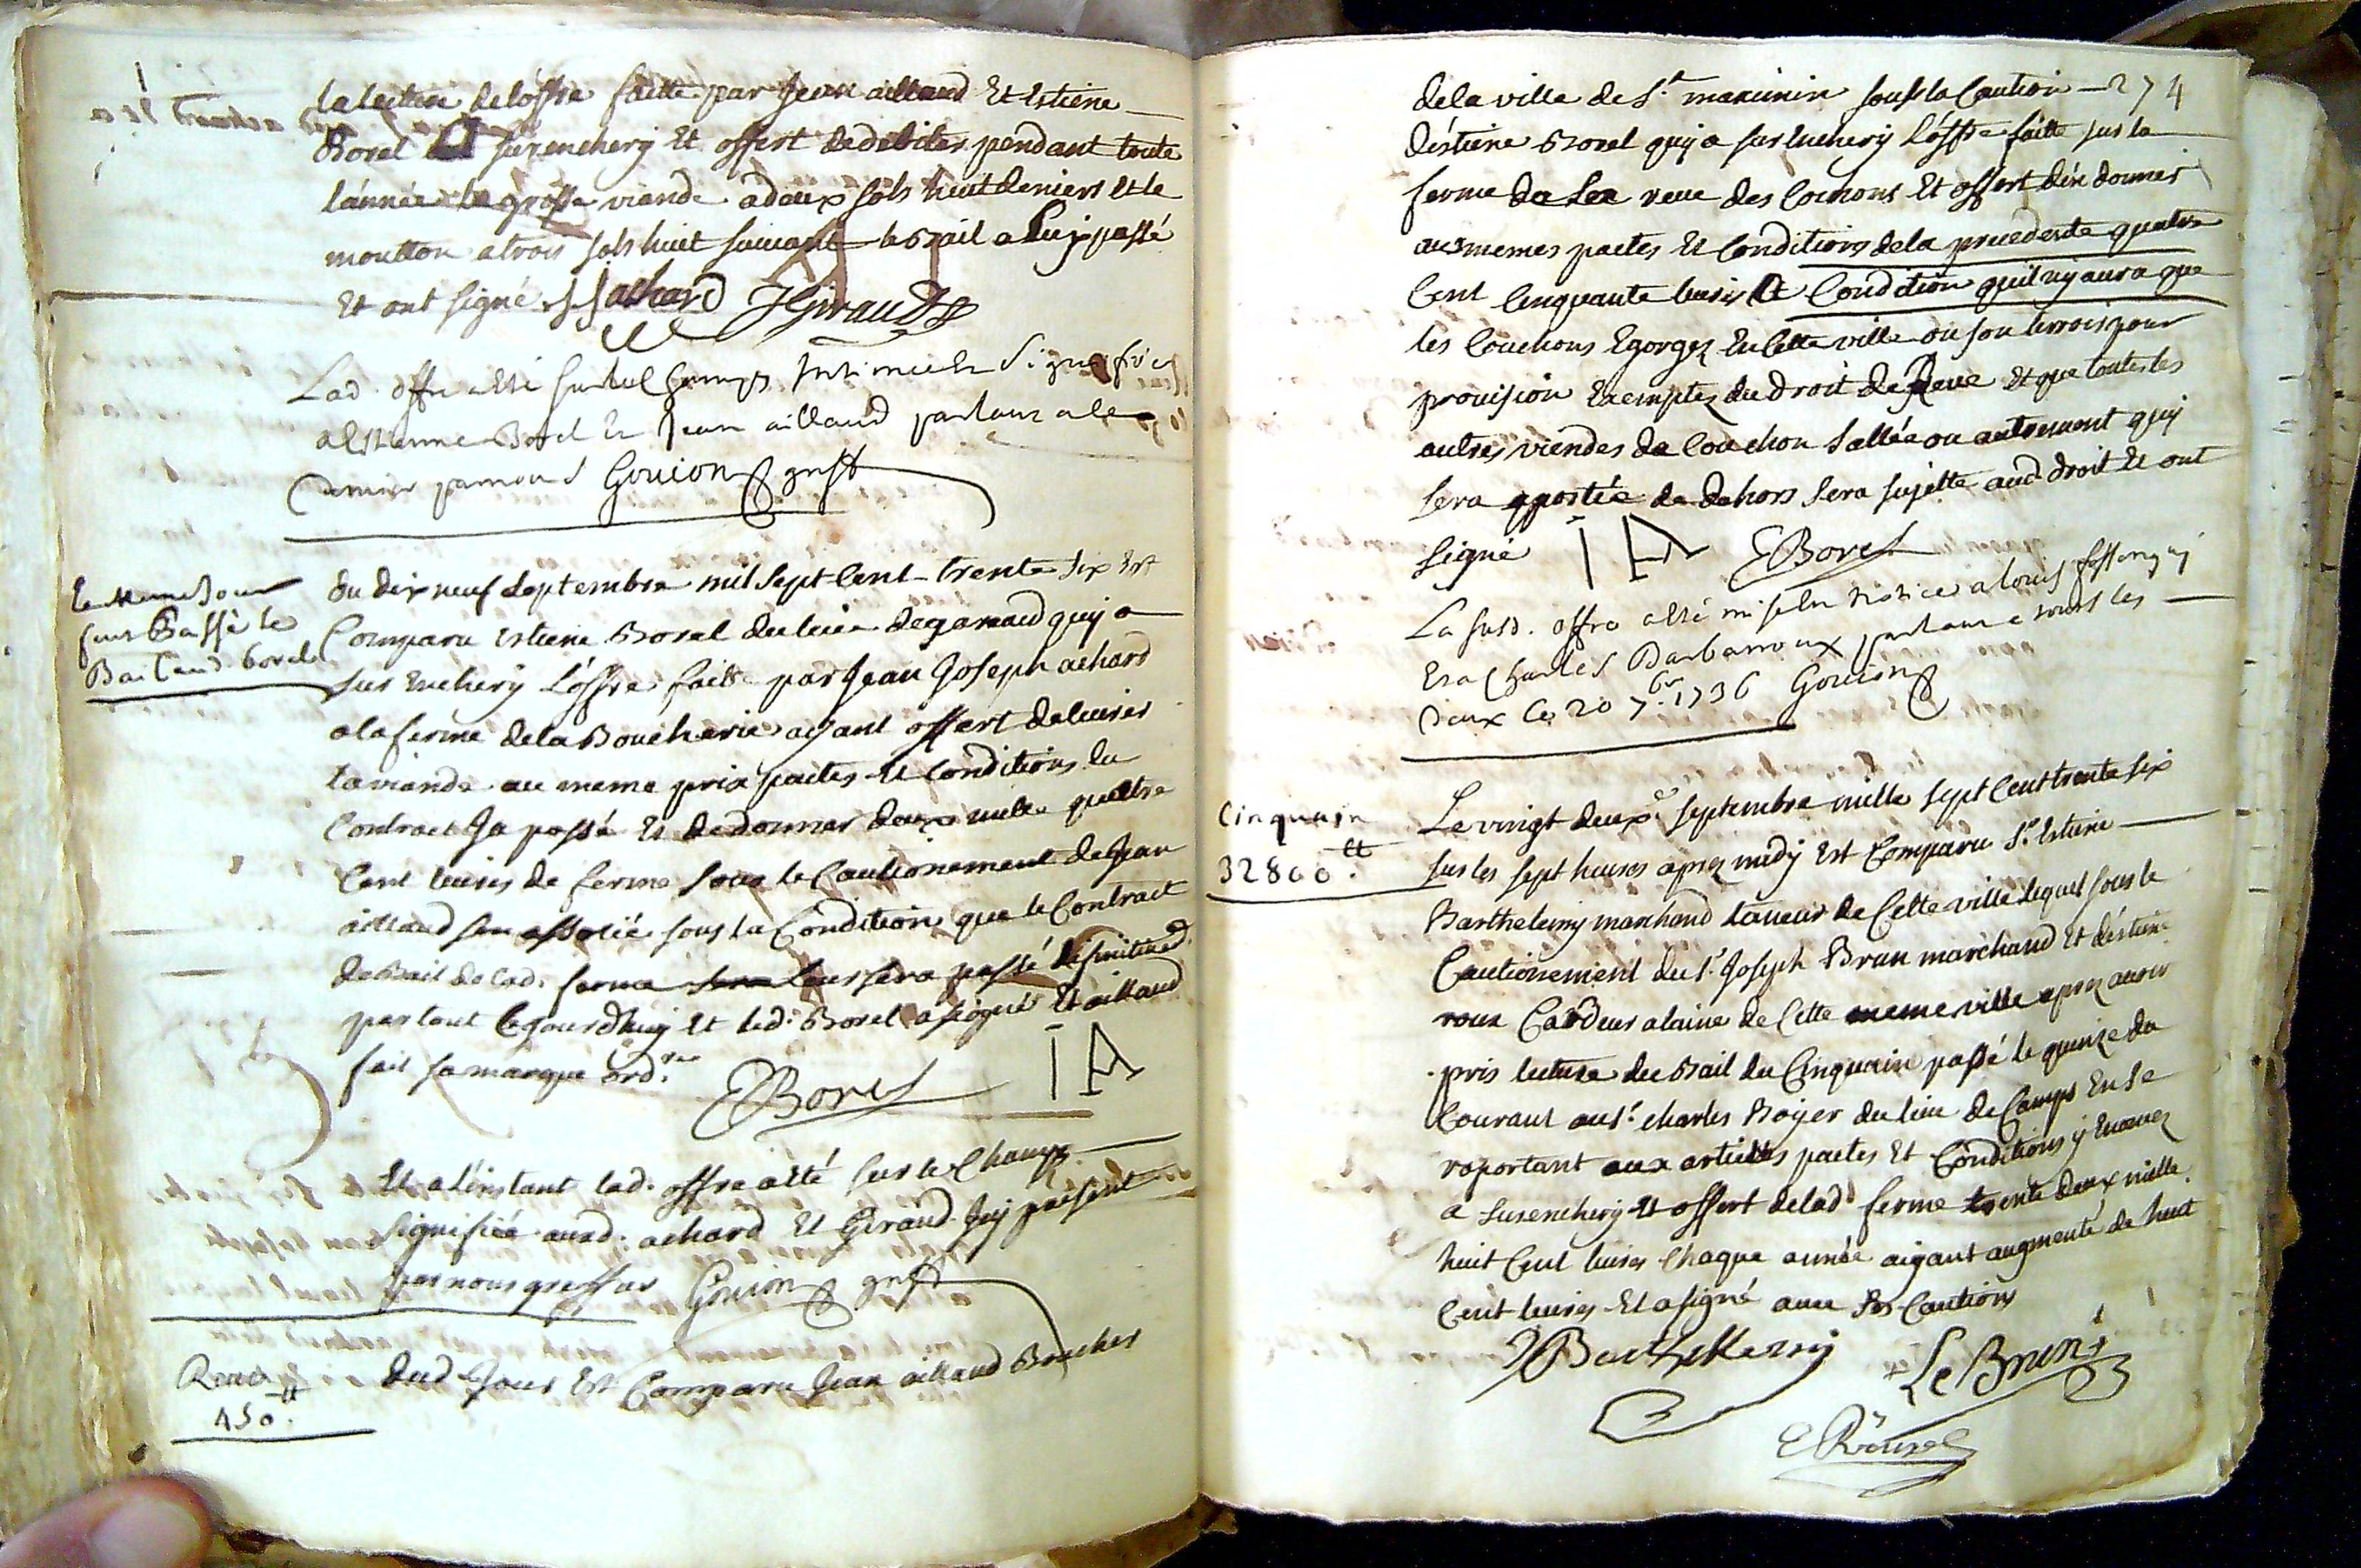 la lecture de lóffre faitte par Jean aillaud Et Estiene
Borel surencherÿ Et offert de debiter pendant toute
lánnée la grosse viande a deux sols huit deniers Et le
moutton a trois sols huit suivant le Bail a Luy passé
Et ont signé JJ achard JGiraud
Lad. offre a Esté sur le Champ Intimée Et Signifiée
a Estienne Borel Et Jean aillaud parlant a le
dernier par nous Gouion greff
Le meme Jour
feut Passé le
Bail aud. borel
Du dix neuf septembre mil sept Cent trente six Est
Comparu Estiene Borel du lieu de garnaud quy a
sur Encherÿ lóffre faitte par Jean Joseph achard
a la ferme de la Boucherie aÿant offert de livrer
la viande au meme prix pactes Et Conditions du
Contract Ja passé Et de donner deux mille quattre
Cent livres de ferme sous le Cautionement de Jean
aillaud son associé sous la Condition que le Contract
de Bail de lad. ferme leur sera passé
partout Cejourdhuy Et led. Borel a signé Et aillaud
fait sa marque ordre
EBorel IA
Et a lénstant lad. offre a Esté sur le Champ
signifiée aud. achard Et Giraud Icy présent
par nous greffier Gouion greff
Reve
450 tt
Dud Jour Est Comparu Jean aillaud Boucher
274
de la ville de St. maximin souls la Caution
déstiene Borel quy a sur Encherÿ lóffre faitte sur la
ferme de la reve des Cochons Et offert dén donner
aux memes pactes Et Conditions de la precedente quatre
Cent Cinquante livres Et Condition quil ny aura que
les Couchons Egorgez En Cette ville ou son terroir pour
provision Exemptez du droit de Reve Et que toutes les
autres viendes de Couchon sallée ou autrement quy
sera aportée de dehors sera sujette aud. droit Et ont
signé IA EBorel
La susd. offre a Esté mise En Notice a louis
Et a Charles Barbarroux parlant a touts les
deux Ce 20 7bre 1736 Gouion
Cinquain
32800 tt.
Le vingt deuxe. septembre mille sept Cent trente six
sur les sept heures aprez midÿ Est Comparu Sr. Estiene
Barthelemy marchand taneur de Cette ville lequel sous le
Cautionement du Sr. Joseph Brun marchand Et déstiene
roux Cardeur a laine de Cette meme ville aprez avoir
pris lecture du Bail du Cinquain passé le quinze du
Courant au Sr. charles Boÿer du lieu de Camps En se
raportant aux articles pactes Et Conditions ÿ Enoncez
a surencherÿ Et offert de lad. ferme trente deux mille
huit Cent livres Chaque année aÿant augmenté de huit
Cent livres Et a signé avec ses Cautions
Barthellemy Le Brun
E Roux